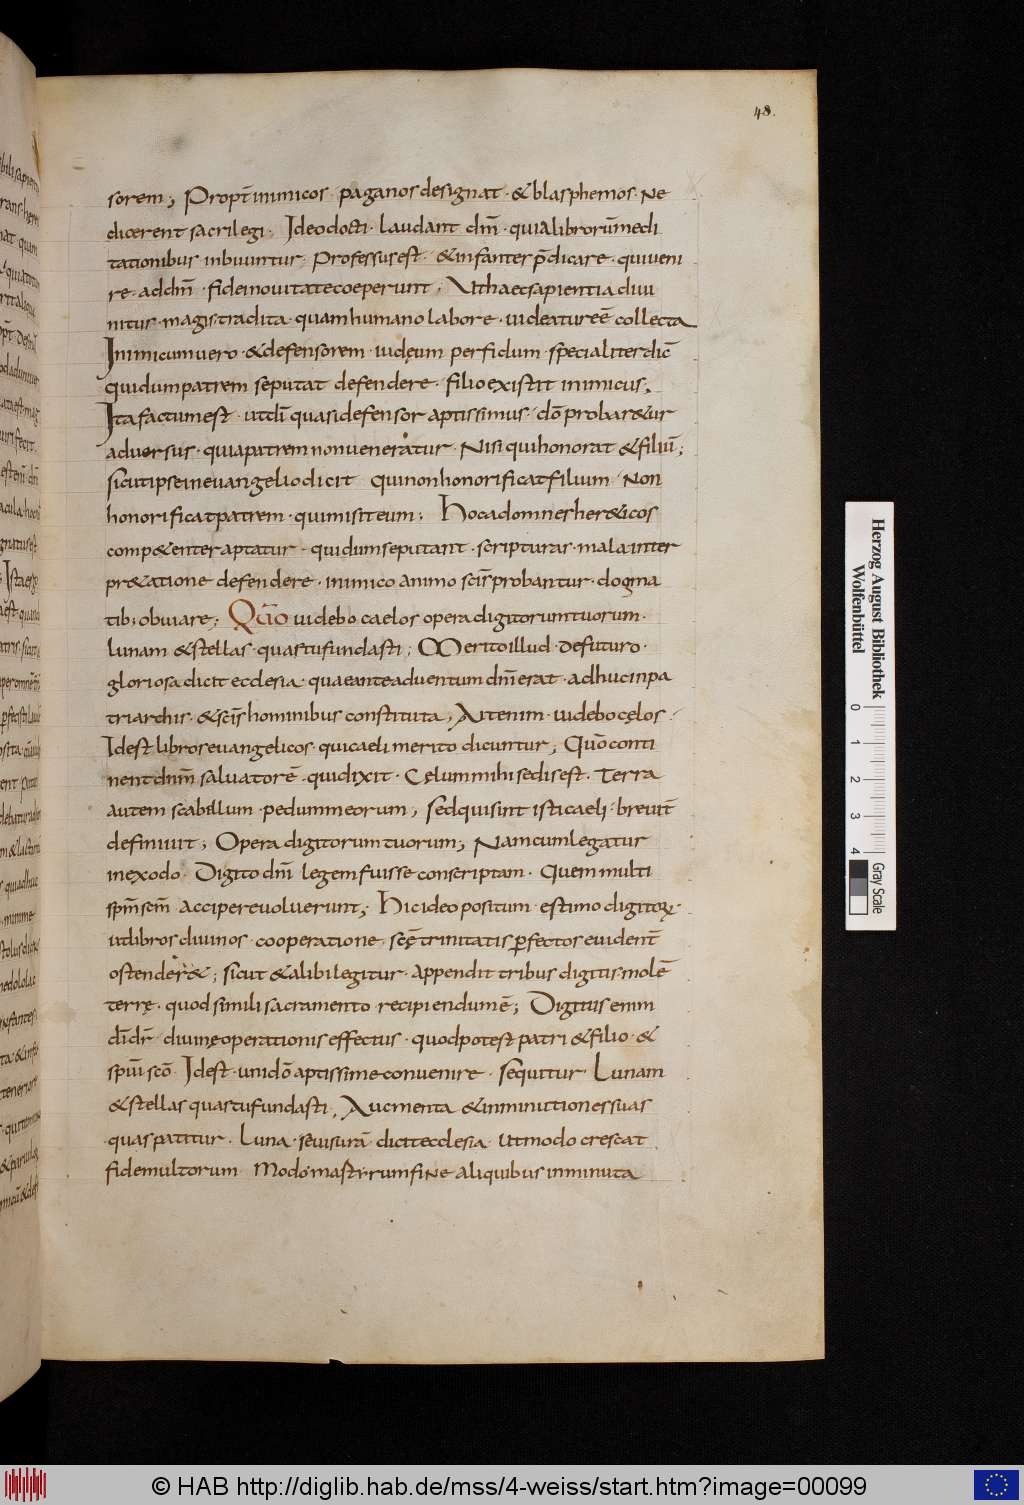 48.
sorem; Propt̄ inimicos · paganos designat · & blasphemos · Ne
dicerent sacrilegi · Ideo docti · laudant dn̄m · quia librorū medi
tationibus inbuuntur · Professus est · & infantes p̄dicare · qui veni
re · ad dn̄m · fidei novitate coeperunt; Ut haec sapientia divi
nitus · magis tradita · quam humano labore · videatur eē collecta
Inimicum vero · & defensorem · iudęum perfidum · specialiter dic̄
qui dum patrem se putat defendere · filio existit inimicus;
Ita factum est · ut dūl quasi defensor aptissimus · dō probar&ur
adversus · quia patrem non veneratur · Nisi qui honorat & filiū;
sicut ipse in evangelio dicit Qui non honorificat filium · Non
honorificat patrem · qui misit eum; Hoc ad omnes her&icos
comp&enter aptatur · qui dum se putant · scripturas · mala inter
pr&atione defendere · inimico animo scīs probantur · dogma
tib; obviare; Qūo videbo caelos opera digitorum tuorum ·
lunam & stellas · quas tu fundasti; Merito illud · de futuro ·
gloriosa dicit ecclesia · quae ante adventum dnī erat · adhuc in pa
triarchis · & scīs hominibus constituta; At enim · videbo cęlos ·
Id est libros evangelicos · qui caeli merito dicuntur; Qūo conti
nent dnm̄ salvatorē · qui dixit · Cęlum mihi sedis est · Terra
autem scabillum · pedum meorum; sed qui sint isti caeli · brevit̄
definivit; Opera digitorum tuorum; Nam cum legatur
in exodo · Digito dn̄i legem fuisse conscriptam · Quem multi
spm̄ scm̄ · accipere voluerunt; Hic ideo positum · estimo digitorꝝ ·
ut libros divinos · cooperatione · scę̄ trinitatis p̄fectos evident̄
ostender&; sicut & alibi legitur · appendit tribus digitis molē
terrę · quod simili sacramento · recipiendum ē; Digitus enim
dī dr̄ · divinę operationis effectus · quod potest patri & filio · &
spū̄i scō · Id est · uni dō aptissime convenire · sequitur · Lunam
& stellas quas tu fundasti, Aucmenta & inminutiones suas
quas patitur · Luna · se visurā · dicit ecclesia · Ut modo crescat
fide multorum · Modo mastyrum fine aliquibus inminuta
Herzog August Bibliothek
Wolfenbüttel
0 1 2 3 4
Gray Scale
© HAB http://diglib.hab.de/mss/4-weiss/start.htm?image=00099